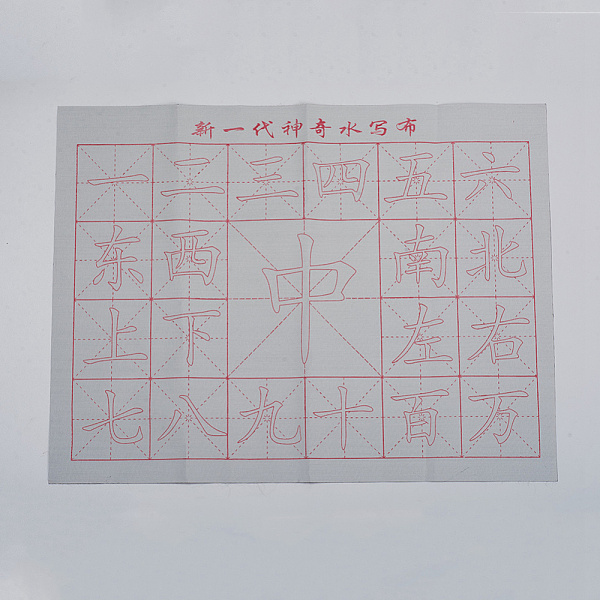 新一代神奇水写布
一二三四五六
东西中南北
上下左右
七八九十百万